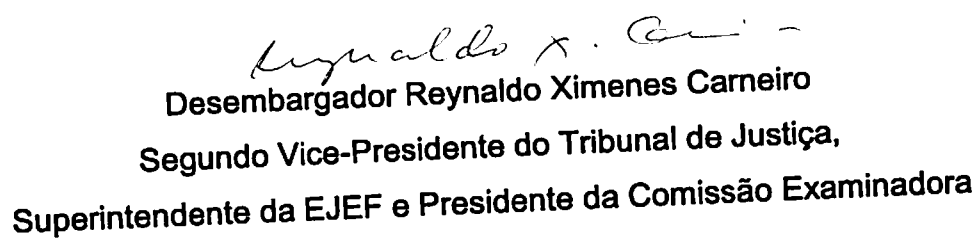 Reynaldo X. Car
Desembargador Reynaldo Ximenes Carneiro
Segundo Vice-Presidente do Tribunal de Justiça,
Superintendente da EJEF e Presidente da Comissão Examinadora